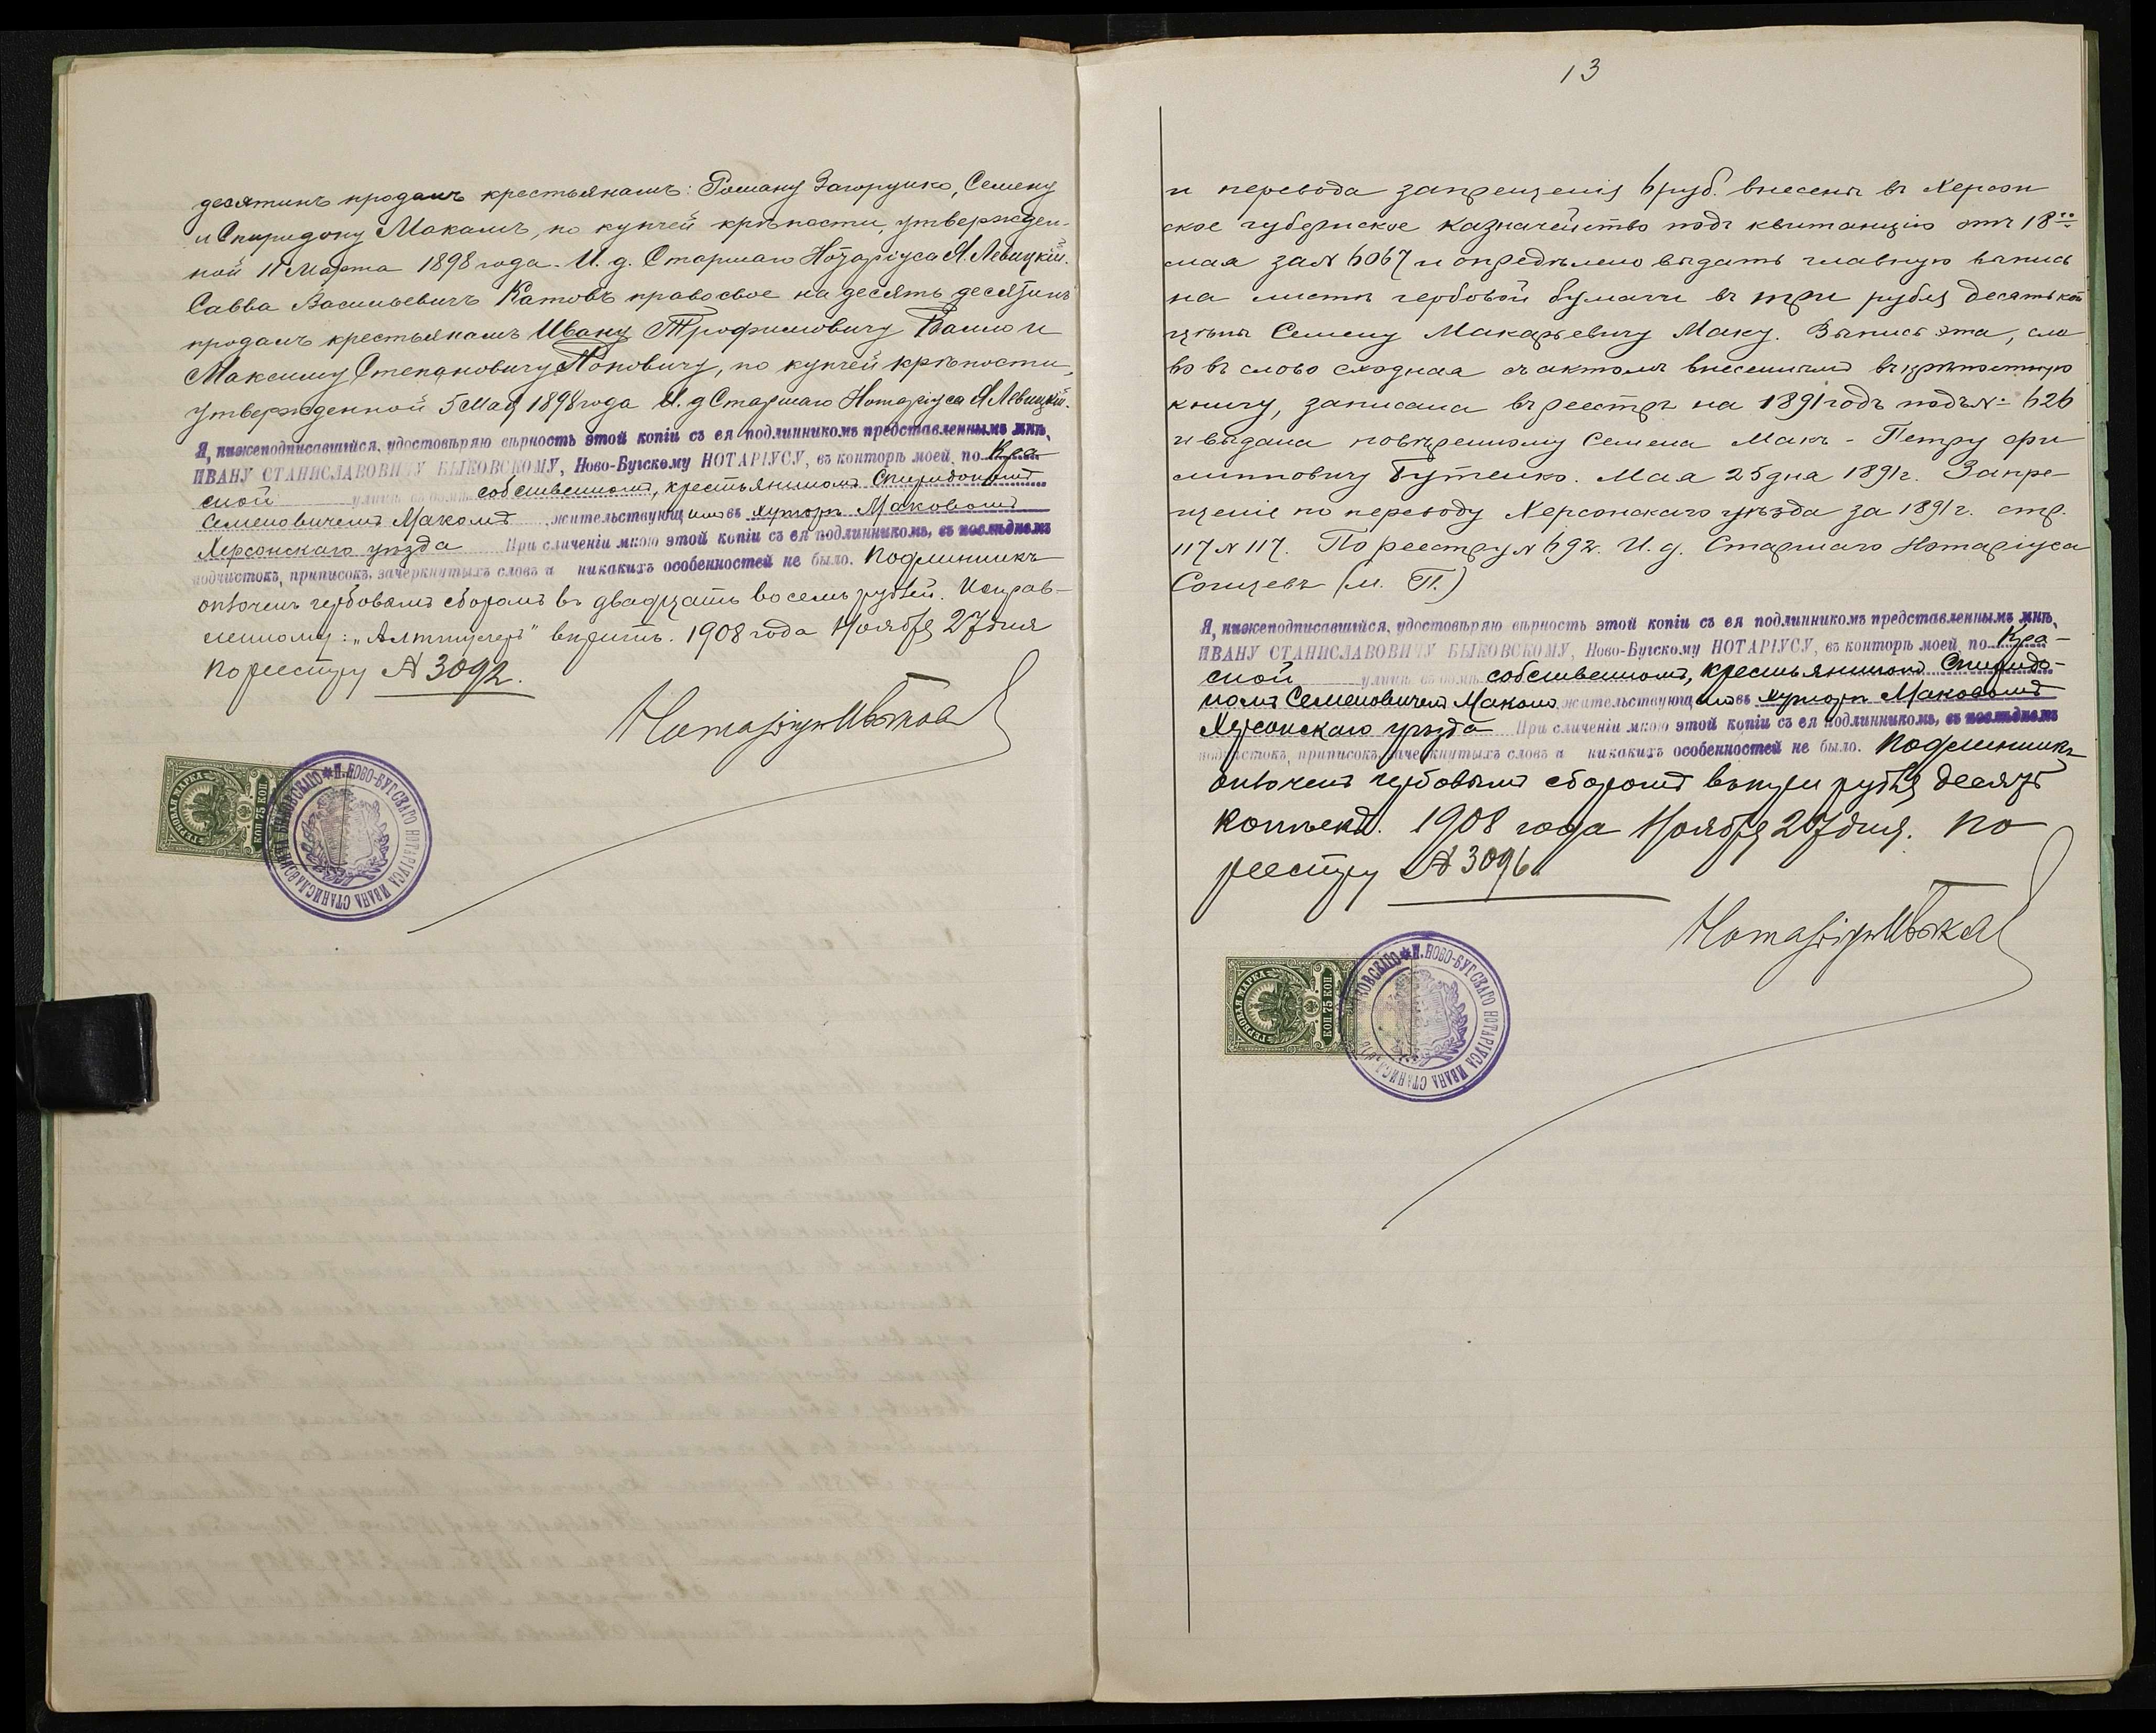 десятинъ продалъ крестьянамъ: Роману Загоруйко, Семену
и Спиридону Макамъ, по купчей крѣпости, утвержден-
ной 11 Марта 1898 года. И. д. Старшаго Нотаріуса Я. Левицкій.
Савва Васильевичъ Катовъ право свое на десять десятинъ
продалъ крестьянамъ Ивану Трофимовичу и
Максиму Степановичу Поповичу, по купчей крѣпости,
утвержденной 5 Мая 1898 года И. д Старшаго Нотаріуса Я Левицкій.
Я, нижеподписавшійся, удостовѣряю вѣрность этой копіи съ ея подлинникомъ представленнымъ мнѣ,
ИВАНУ СТАНИСЛАВОВИЧУ БЫКОВСКОМУ, Ново-Бугскому НОТАРІУСУ, въ конторѣ моей, по Кра-
сной улицѣ въ домѣ собственномъ, крестьяниномъ Спиридономъ
Семеновичемъ Макомъ жительствующимъ въ хуторѣ Маковомъ
Херсонскаго уѣзда При сличеніи мною этой копіи съ ея подлинникомъ, въ послѣднемъ
подчистокъ, приписокъ, зачеркнутыхъ словъ и никакихъ особенностей не было. Подлинникъ
оплоченъ гербовымъ сборомъ въ двадцать восемь рублей. Исправ-
ленному: вѣрить. 1908 года Ноября 27 дня
По реестру № 3092.
Нотаріусъ ИБыковскій
ГЕРБОВАЯ МАРКА
75 КОП
* П. НОВО-БУГСКАГО НОТАРІУСА ИВАНА СТАНИСЛАВОВИЧА БЫКОВСКАГО
13
и перевода запрещенія 6 руб. внесены въ Херсон
ское губернское казначейство подъ квитанцію отъ 18го
мая за № 6067 и опредѣлено выдать главную выпись
на листѣ гербовой бумаги въ три рубля десять коп
цѣны Семену Макарьевичу Маку. Выпись эта, сло
во въ слово сходная съ актомъ внесеннымъ въ крѣпостную
книгу, записана въ реестръ на 1891 годъ подъ № 626
и выдана повѣренному Семена Макъ - Петру Фи
липповичу Бутенко. Мая 25 дня 1891 г. Запре-
щеніе по переводу Херсонскаго уѣзда за 1891 г. стр.
117 № 117. По реестру № 692. И. д. Старшаго Нотаріуса
Сонцевъ (М. П.)
Я, нижеподписавшійся, удостовѣряю вѣрность этой копіи съ ея подлинникомъ представленнымъ мнѣ,
ИВАНУ СТАНИСЛАВОВИЧУ БЫКОВСКОМУ, Ново-Бугскому НОТАРІУСУ, въ конторѣ моей, по Кра-
сной улицѣ въ домѣ собственномъ, крестьяниномъ Спиридо-
номъ Семеновичемъ Макомъ жительствующимъ въ хуторѣ Маковомъ
Херсонскаго уѣзда При сличеніи мною этой копіи съ ея подлинникомъ, въ послѣднемъ
подчистокъ, приписокъ, зачеркнутыхъ словъ и никакихъ особенностей не было. Подлинникъ
оплоченъ гербовымъ сборомъ въ три рубля десять
копѣекъ. 1908 года Ноября 27 дня. По
реестру № 3096
Нотаріусъ ИБыковскій
ГЕРБОВАЯ МАРКА
75 КОП
* П. НОВО-БУГСКАГО НОТАРІУСА ИВАНА СТАНИСЛАВОВИЧА БЫКОВСКАГО